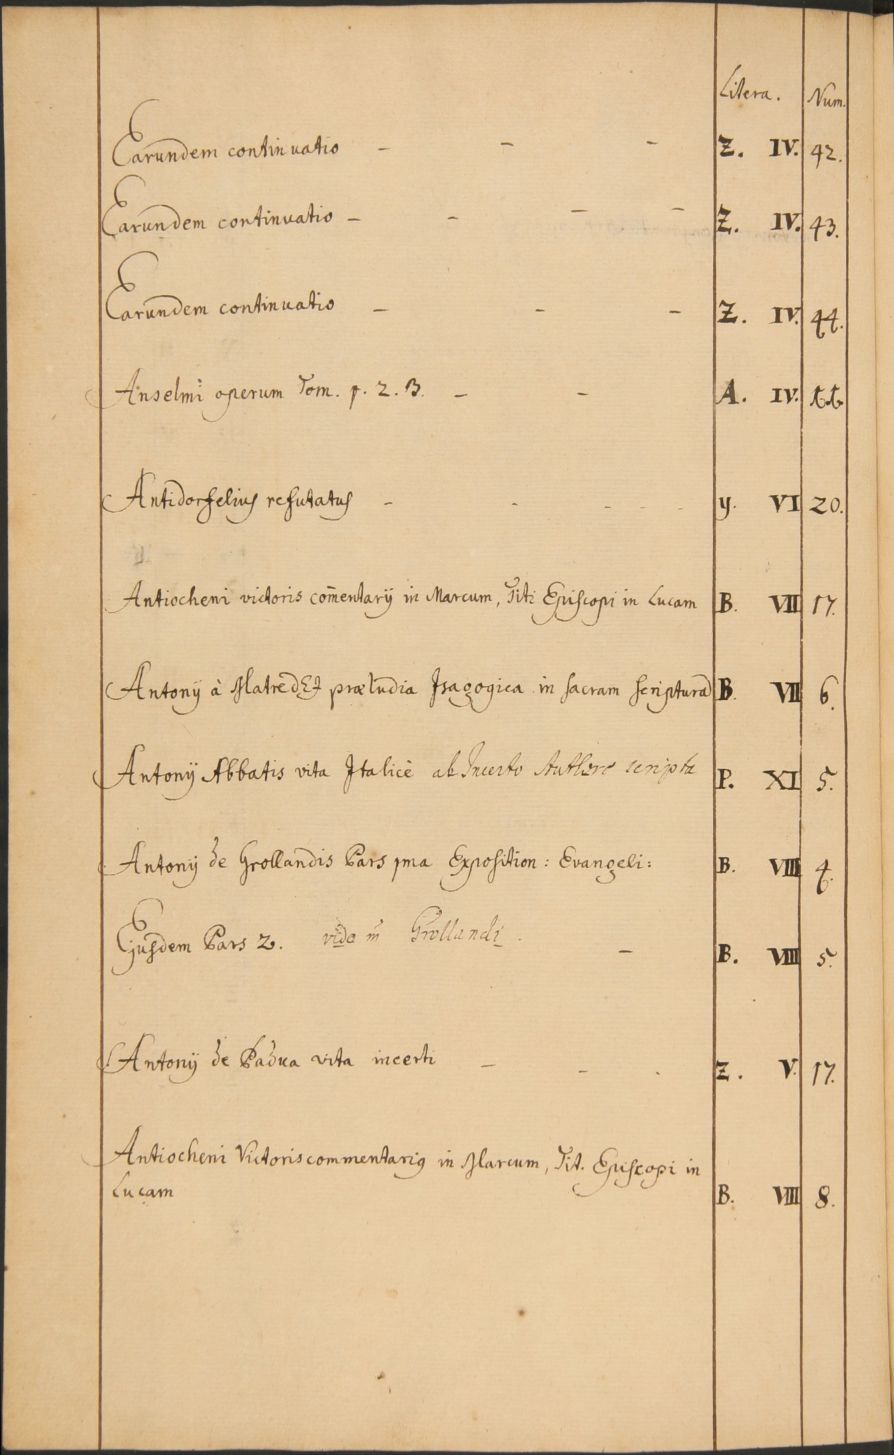 Litera. Num.
Earundem continuatio - - - Z. IV. 42.
Earundem continuatio - - - - Z. IV. 43.
Earundem continuatio - - - Z. IV. 44.
Anselmi operum Tom. 1. 2. 3. - - A. IV.
Antidorselius refutatus - - - - - y. VI 20.
Antiocheni victoris com̄entarij in Marcum, Titi Episcopi in Lucam B. VII 17.
Antonij à Matre DEI præludia Isagogica in sacram scripturā B. VII 6.
Antonij Abbatis vita Italicè ab Incerto Authore scripta P. XI 5.
Antonij de Grollandis Pars 1ma Exposition: Evangeli: B. VIII 4.
Ejusdem Pars 2. vide in Grollandi. - B. VIII 5.
Antonij de Padua vita incerti - - - Z. V. 17.
Antiocheni Victoris commentarius in Marcum, Tit. Episcopi in
Lucam B. VIII 8.